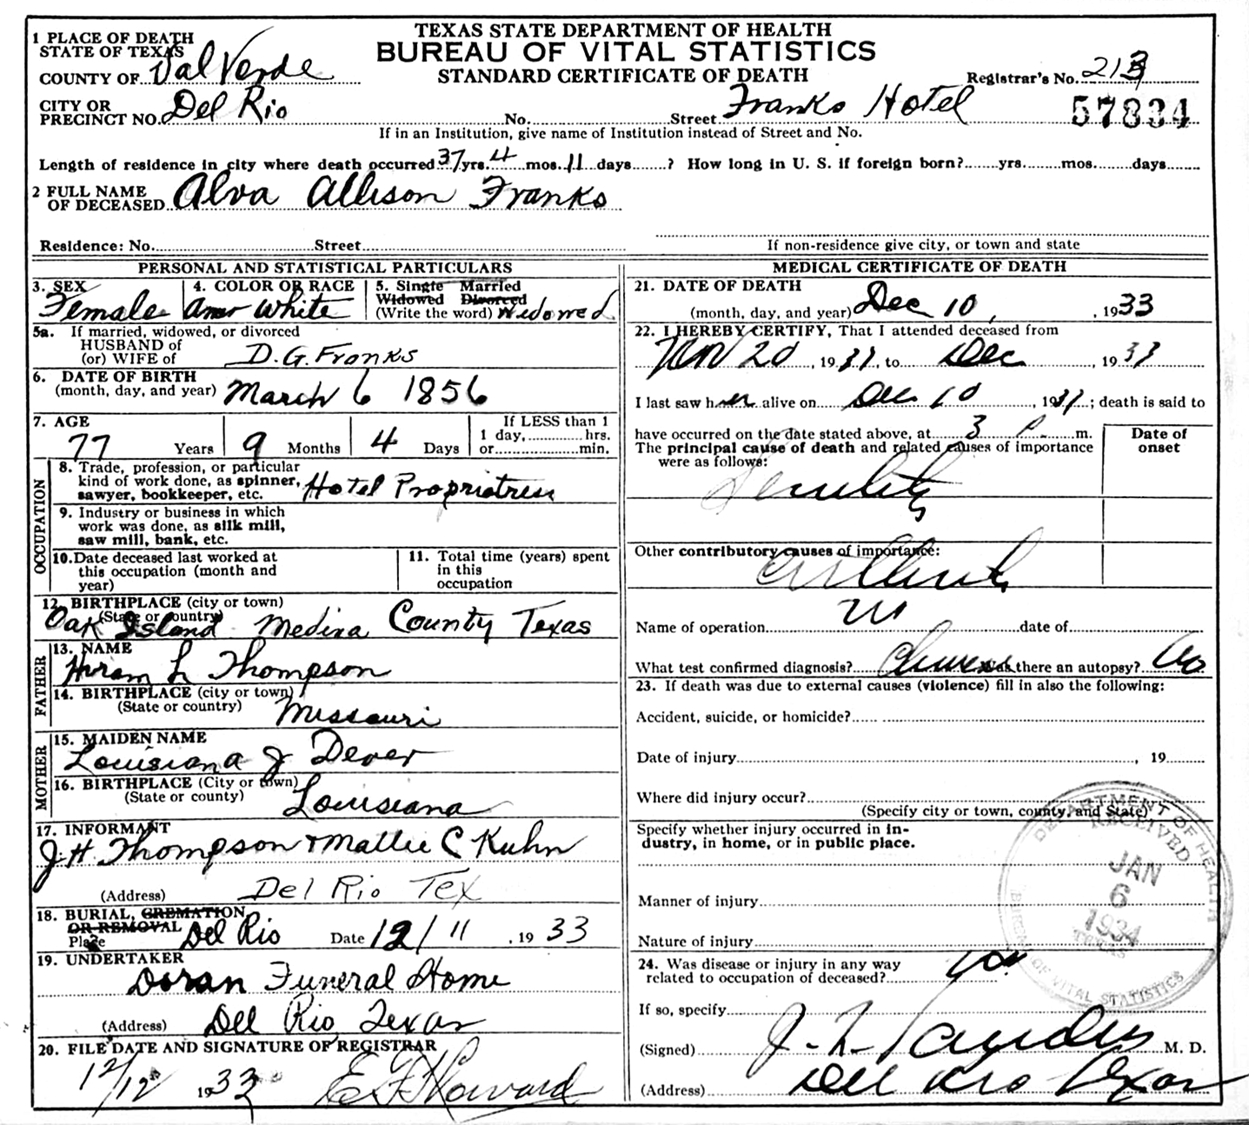 TEXAS STATE DEPARTMENT OF HEALTH
BUREAU OF VITAL STATISTICS
STANDARD CERTIFICATE OF DEATH
1 PLACE OF DEATH
STATE OF TEXAS
COUNTY OF Val Verde
Registrar's No. 213
CITY OR
PRECINCT NO. Del Rio No. Street Franks Hotel
57834
If in an Institution, give name of Institution instead of Street and No.
Length of residence in city where death occurred 37 yrs. 4 mos. 11 days ? How long in U. S. if foreign born? yrs. mos. days
2 FULL NAME
OF DECEASED Alva Allison Franks
Residence: No. Street
If non-residence give city, or town and state
PERSONAL AND STATISTICAL PARTICULARS
3. SEX
Female
4. COLOR OR RACE
Amer White
5. Single Married
Widowed Divorced
(Write the word) Widowed
5a. If married, widowed, or divorced
HUSBAND of
(or) WIFE of D. G. Franks
6. DATE OF BIRTH
(month, day, and year) March 6 1856
7. AGE
77 Years 9 Months 4 Days
If LESS than 1
1 day, hrs.
or min.
OCCUPATION
8. Trade, profession, or particular
kind of work done, as spinner,
sawyer, bookkeeper, etc. Hotel Proprietress
9. Industry or business in which
work was done, as silk mill,
saw mill, bank, etc.
10. Date deceased last worked at
this occupation (month and
year)
11. Total time (years) spent
in this
occupation
12. BIRTHPLACE (city or town)
(State or country)
Oak Island Medina County Texas
FATHER
13. NAME
Hiram L Thompson
14. BIRTHPLACE (city or town)
(State or country) Missouri
MOTHER
15. MAIDEN NAME
Louisiana J Dever
16. BIRTHPLACE (City or town)
(State or county) Louisiana
17. INFORMANT
J. H. Thompson + Mallie C Kuhn
(Address) Del Rio Tex
18. BURIAL, CREMATION
OR REMOVAL
Place Del Rio Date 12/11, 1933
19. UNDERTAKER
Doran Funeral Home
(Address) Del Rio, Texas
20. FILE DATE AND SIGNATURE OF REGISTRAR
12/12 1933 E F Howard
MEDICAL CERTIFICATE OF DEATH
21. DATE OF DEATH
(month, day, and year) Dec 10, , 1933
22. I HEREBY CERTIFY, That I attended deceased from
20, 19 to Dec , 1933
I last saw her alive on Dec 10 , 19 ; death is said to
have occurred on the date stated above, at 3 P. m.
The principal cause of death and related causes of importance
were as follows:
Date of
onset
Senility
Other contributory causes of importance:
Name of operation date of
What test confirmed diagnosis? Was there an autopsy? No
23. If death was due to external causes (violence) fill in also the following:
Accident, suicide, or homicide?
Date of injury , 19
Where did injury occur?
(Specify city or town, county, and State)
Specify whether injury occurred in in-
dustry, in home, or in public place.
Manner of injury
Nature of injury
24. Was disease or injury in any way
related to occupation of deceased?
If so, specify
(Signed) M. D.
(Address) Del Rio Texas
DEPARTMENT OF HEALTH
RECEIVED
JAN
6
1934
TEXAS
BUREAU OF VITAL STATISTICS